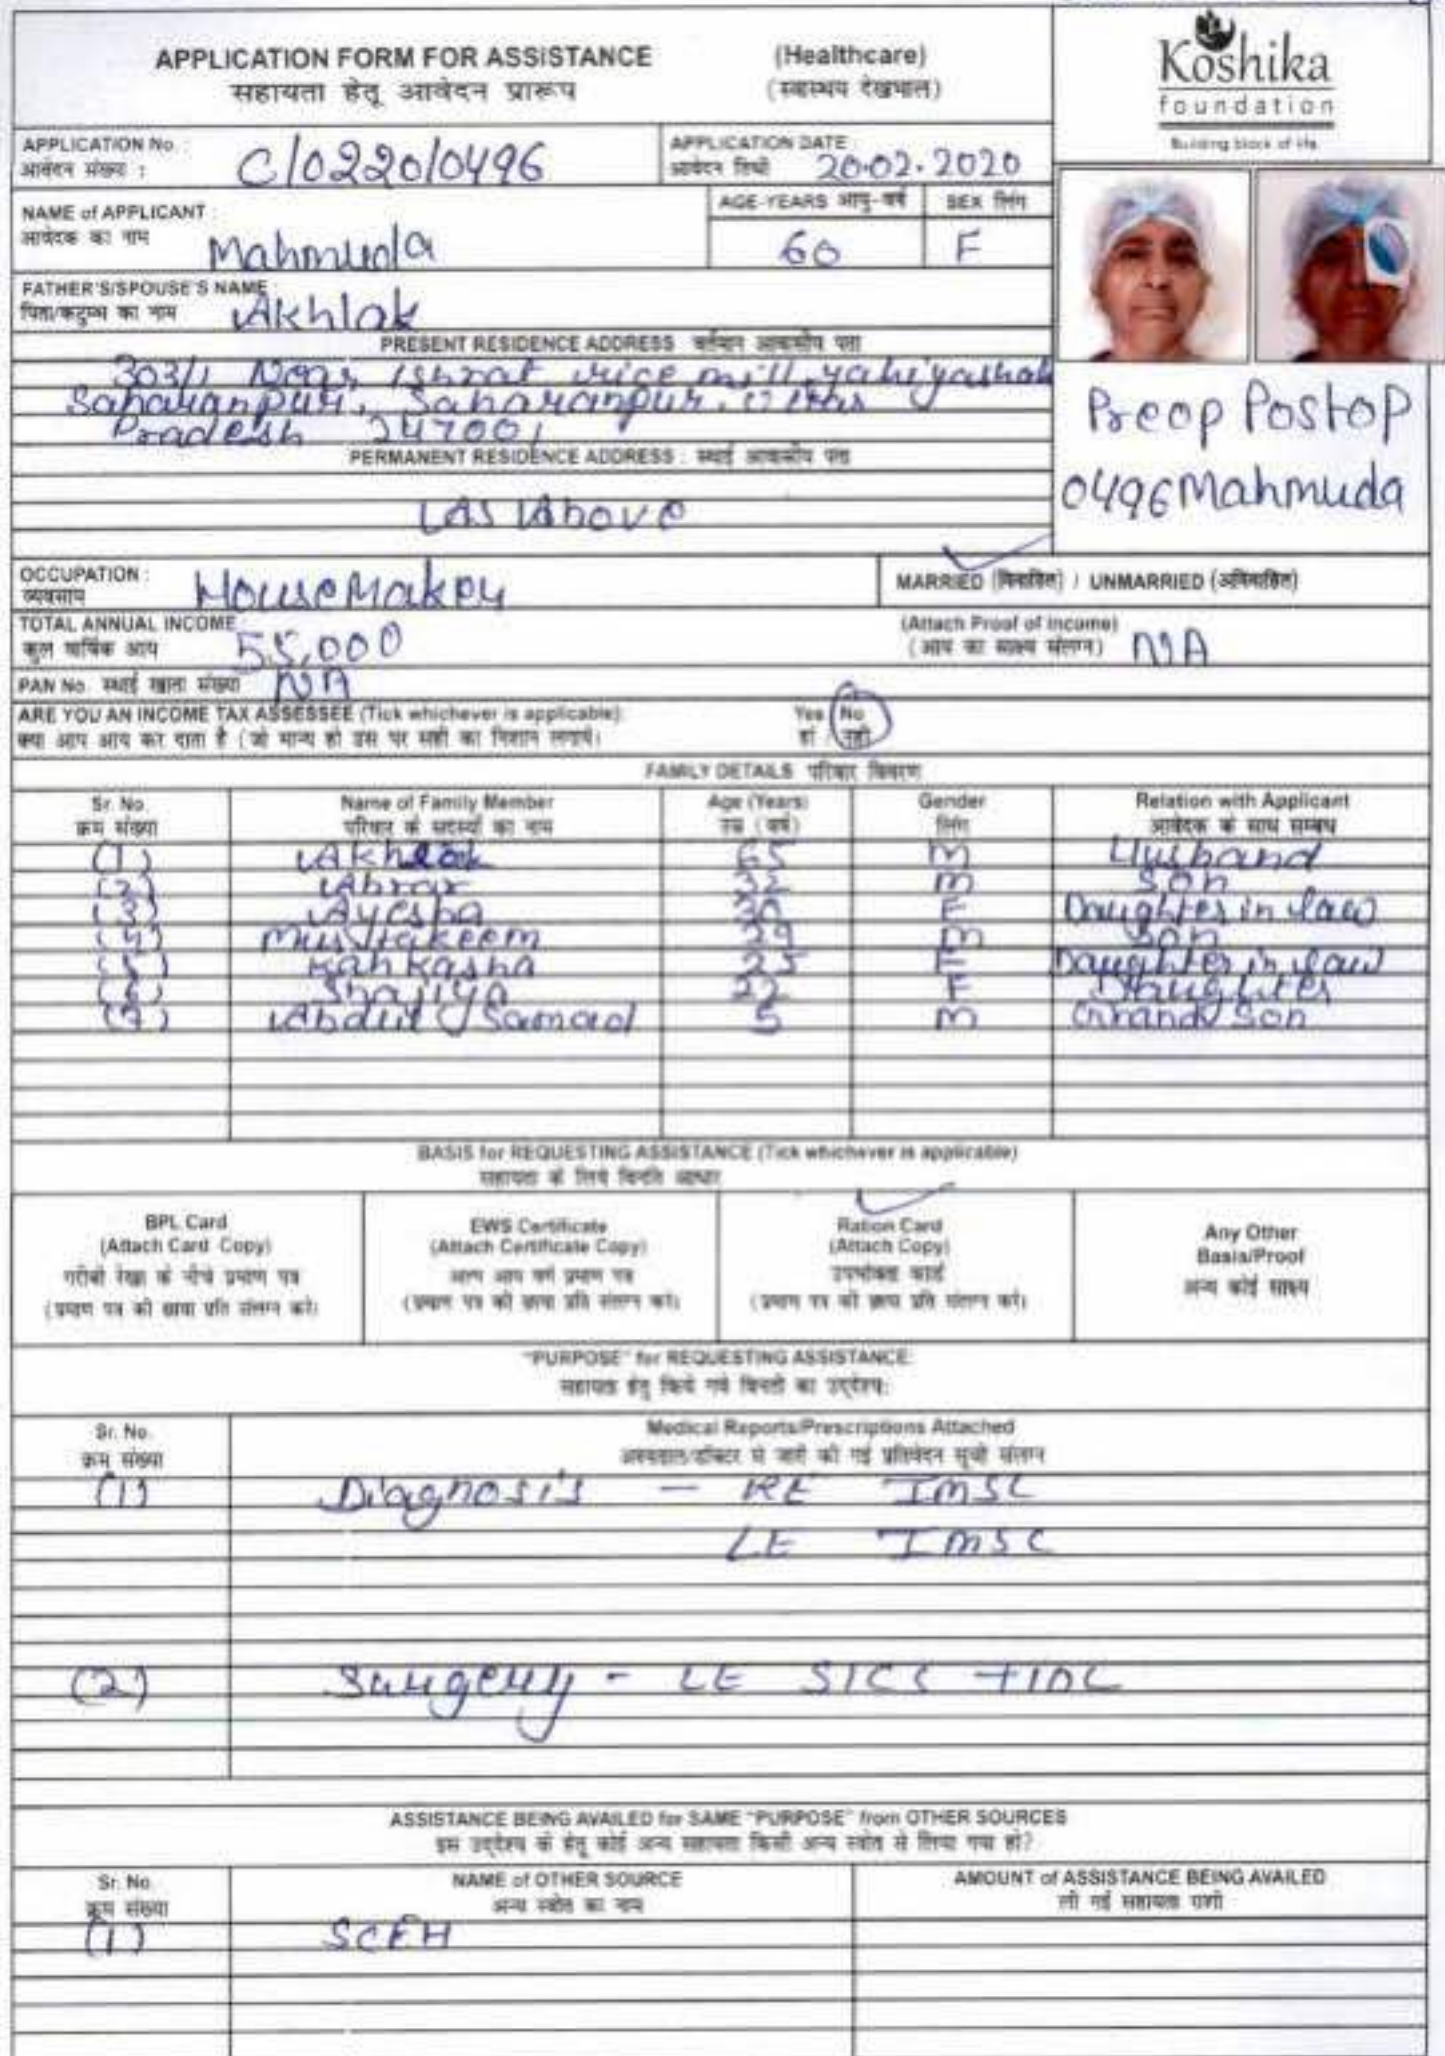 APPLICATION FORM FOR ASSISTANCE (Healthcare)
सहायता हेतू आवेदन प्रारूप (स्वास्थय देखभाल)
Koshika
foundation
Building block of life
APPLICATION No :
आवेदन संख्या : C/0220/0496
APPLICATION DATE
आवेदन तिथी 20.02.2020
NAME of APPLICANT :
आवेदक का नाम Mahmuda
AGE-YEARS आयु-वर्ष 60
SEX लिंग F
FATHER'S/SPOUSE'S NAME
पिता/कटुम्ब का नाम Akhlak
PRESENT RESIDENCE ADDRESS वर्तमान आवासीय पता
303/1 Near Ishrat rice mill yahiyashah
Saharanpur, Saharanpur, Uttar
Pradesh 247001
PERMANENT RESIDENCE ADDRESS : स्थाई आवासीय पता
As Above
Preop Postop
0496 Mahmuda
OCCUPATION :
व्यवसाय HouseMaker
MARRIED (विवाहित) / UNMARRIED (अविवाहित)
TOTAL ANNUAL INCOME
कुल वार्षिक आय 55,000
(Attach Proof of Income)
(आय का साक्ष्य संलग्न) N/A
PAN No. स्थाई खाता संख्या NA
ARE YOU AN INCOME TAX ASSESSEE (Tick whichever is applicable): Yes / No
क्या आप आय कर दाता है (जो मान्य हो उस पर सही का निशान लगायें) हां / नहीं
FAMILY DETAILS परिवार विवरण
Sr. No. Name of Family Member Age (Years) Gender Relation with Applicant
क्रम संख्या परिवार के सदस्यों का नाम उम्र (वर्ष) लिंग आवेदक के साथ सम्बंध
(1) Akhlak 65 M Husband
(2) Abrar 32 M Son
(3) Ayesha 30 F Daughter in law
(4) Mustakeem 29 M Son
(5) Kahkasha 25 F Daughter in law
(6) Shajiya 22 F Daughter
(7) Abdul Samad 5 M Grand Son
BASIS for REQUESTING ASSISTANCE (Tick whichever is applicable)
सहायता के लिये विनति आधार
BPL Card
(Attach Card Copy)
गरीबी रेखा के नीचे प्रमाण पत्र
(प्रमाण पत्र की छाया प्रति संलग्न करें)
EWS Certificate
(Attach Certificate Copy)
अल्प आय वर्ग प्रमाण पत्र
(प्रमाण पत्र की छाया प्रति संलग्न करें)
Ration Card
(Attach Copy)
उपभोक्ता कार्ड
(प्रमाण पत्र की छाया प्रति संलग्न करें)
Any Other
Basis/Proof
अन्य कोई साक्ष्य
"PURPOSE" for REQUESTING ASSISTANCE:
सहायता हेतु किये गये विनती का उद्देश्य:
Sr. No. Medical Reports/Prescriptions Attached
क्रम संख्या अस्पताल/डॉक्टर से जारी की गई प्रतिवेदन सूची संलग्न
(1) Diagnosis - RE IMSC
LE IMSC
(2) Surgery - LE SICS + IOL
ASSISTANCE BEING AVAILED for SAME "PURPOSE" from OTHER SOURCES
इस उद्देश्य के हेतु कोई अन्य सहायता किसी अन्य स्त्रोत से लिया गया हो?
Sr. No. NAME of OTHER SOURCE AMOUNT of ASSISTANCE BEING AVAILED
क्रम संख्या अन्य स्त्रोत का नाम ली गई सहायता राशी
(1) SCEH